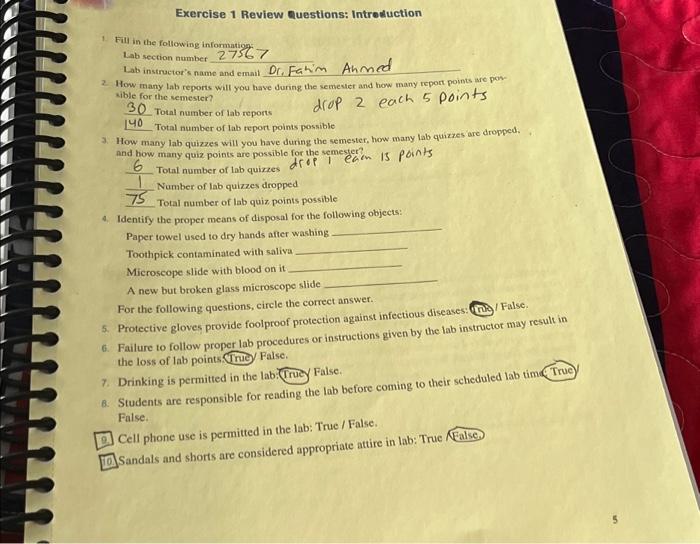 Exercise 1 Review Questions: Introduction
1. Fill in the following information:
Lab section number 27567
Lab instructor's name and email Dr. Fahim Ahmed
2. How many lab reports will you have during the semester and how many report points are pos-
sible for the semester?
drop 2 each 5 points
30 Total number of lab reports
140 Total number of lab report points possible
3. How many lab quizzes will you have during the semester, how many lab quizzes are dropped,
and how many quiz points are possible for the semester?
drop 1 each 15 points
6 Total number of lab quizzes
1 Number of lab quizzes dropped
75 Total number of lab quiz points possible
4. Identify the proper means of disposal for the following objects:
Paper towel used to dry hands after washing
Toothpick contaminated with saliva
Microscope slide with blood on it
A new but broken glass microscope slide
For the following questions, circle the correct answer.
5. Protective gloves provide foolproof protection against infectious diseases: True / False.
6. Failure to follow proper lab procedures or instructions given by the lab instructor may result in
the loss of lab points: True / False.
7. Drinking is permitted in the lab: True / False.
8. Students are responsible for reading the lab before coming to their scheduled lab time: True /
False.
9. Cell phone use is permitted in the lab: True / False.
10. Sandals and shorts are considered appropriate attire in lab: True / False.
5